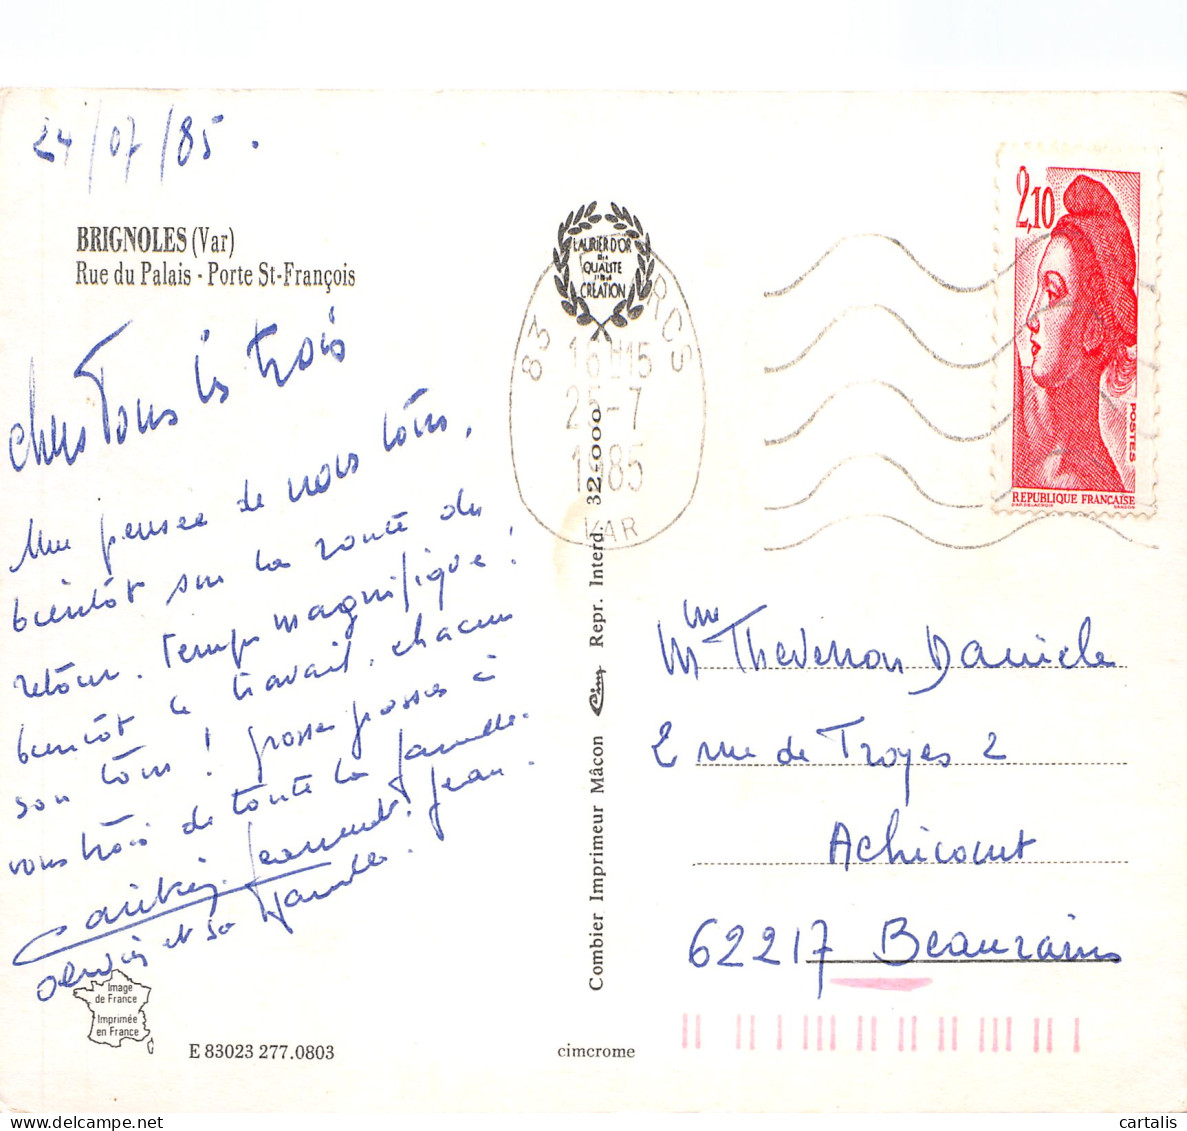 24/07/85.
BRIGNOLES (Var)
Rue du Palais - Porte St-François
chers Tous les trois
Une pensée de nous tous,
bientôt sur la route du
retour. Temps magnifique !
bientôt le travail, chacun
son tour ! grosses grosses à
vous trois de toute la famille.
Jean.
et sa famille.
Image
de France
Imprimée
en France
E 83023 277.0803
cimcrome
Combier Imprimeur Mâcon Cim Repr. Interd. 32-000
LAURIER D'OR
DE LA
QUALITE
DE LA
CREATION
83 RCS
16H15
25-7
1985
VAR
2,10
POSTES
REPUBLIQUE FRANÇAISE
D'AP. DELACROIX GANDON
Mme Thevenon Danièle
2 rue de Troyes 2
Achicourt
62217 Beaurains
cartalis | Delcampe.net